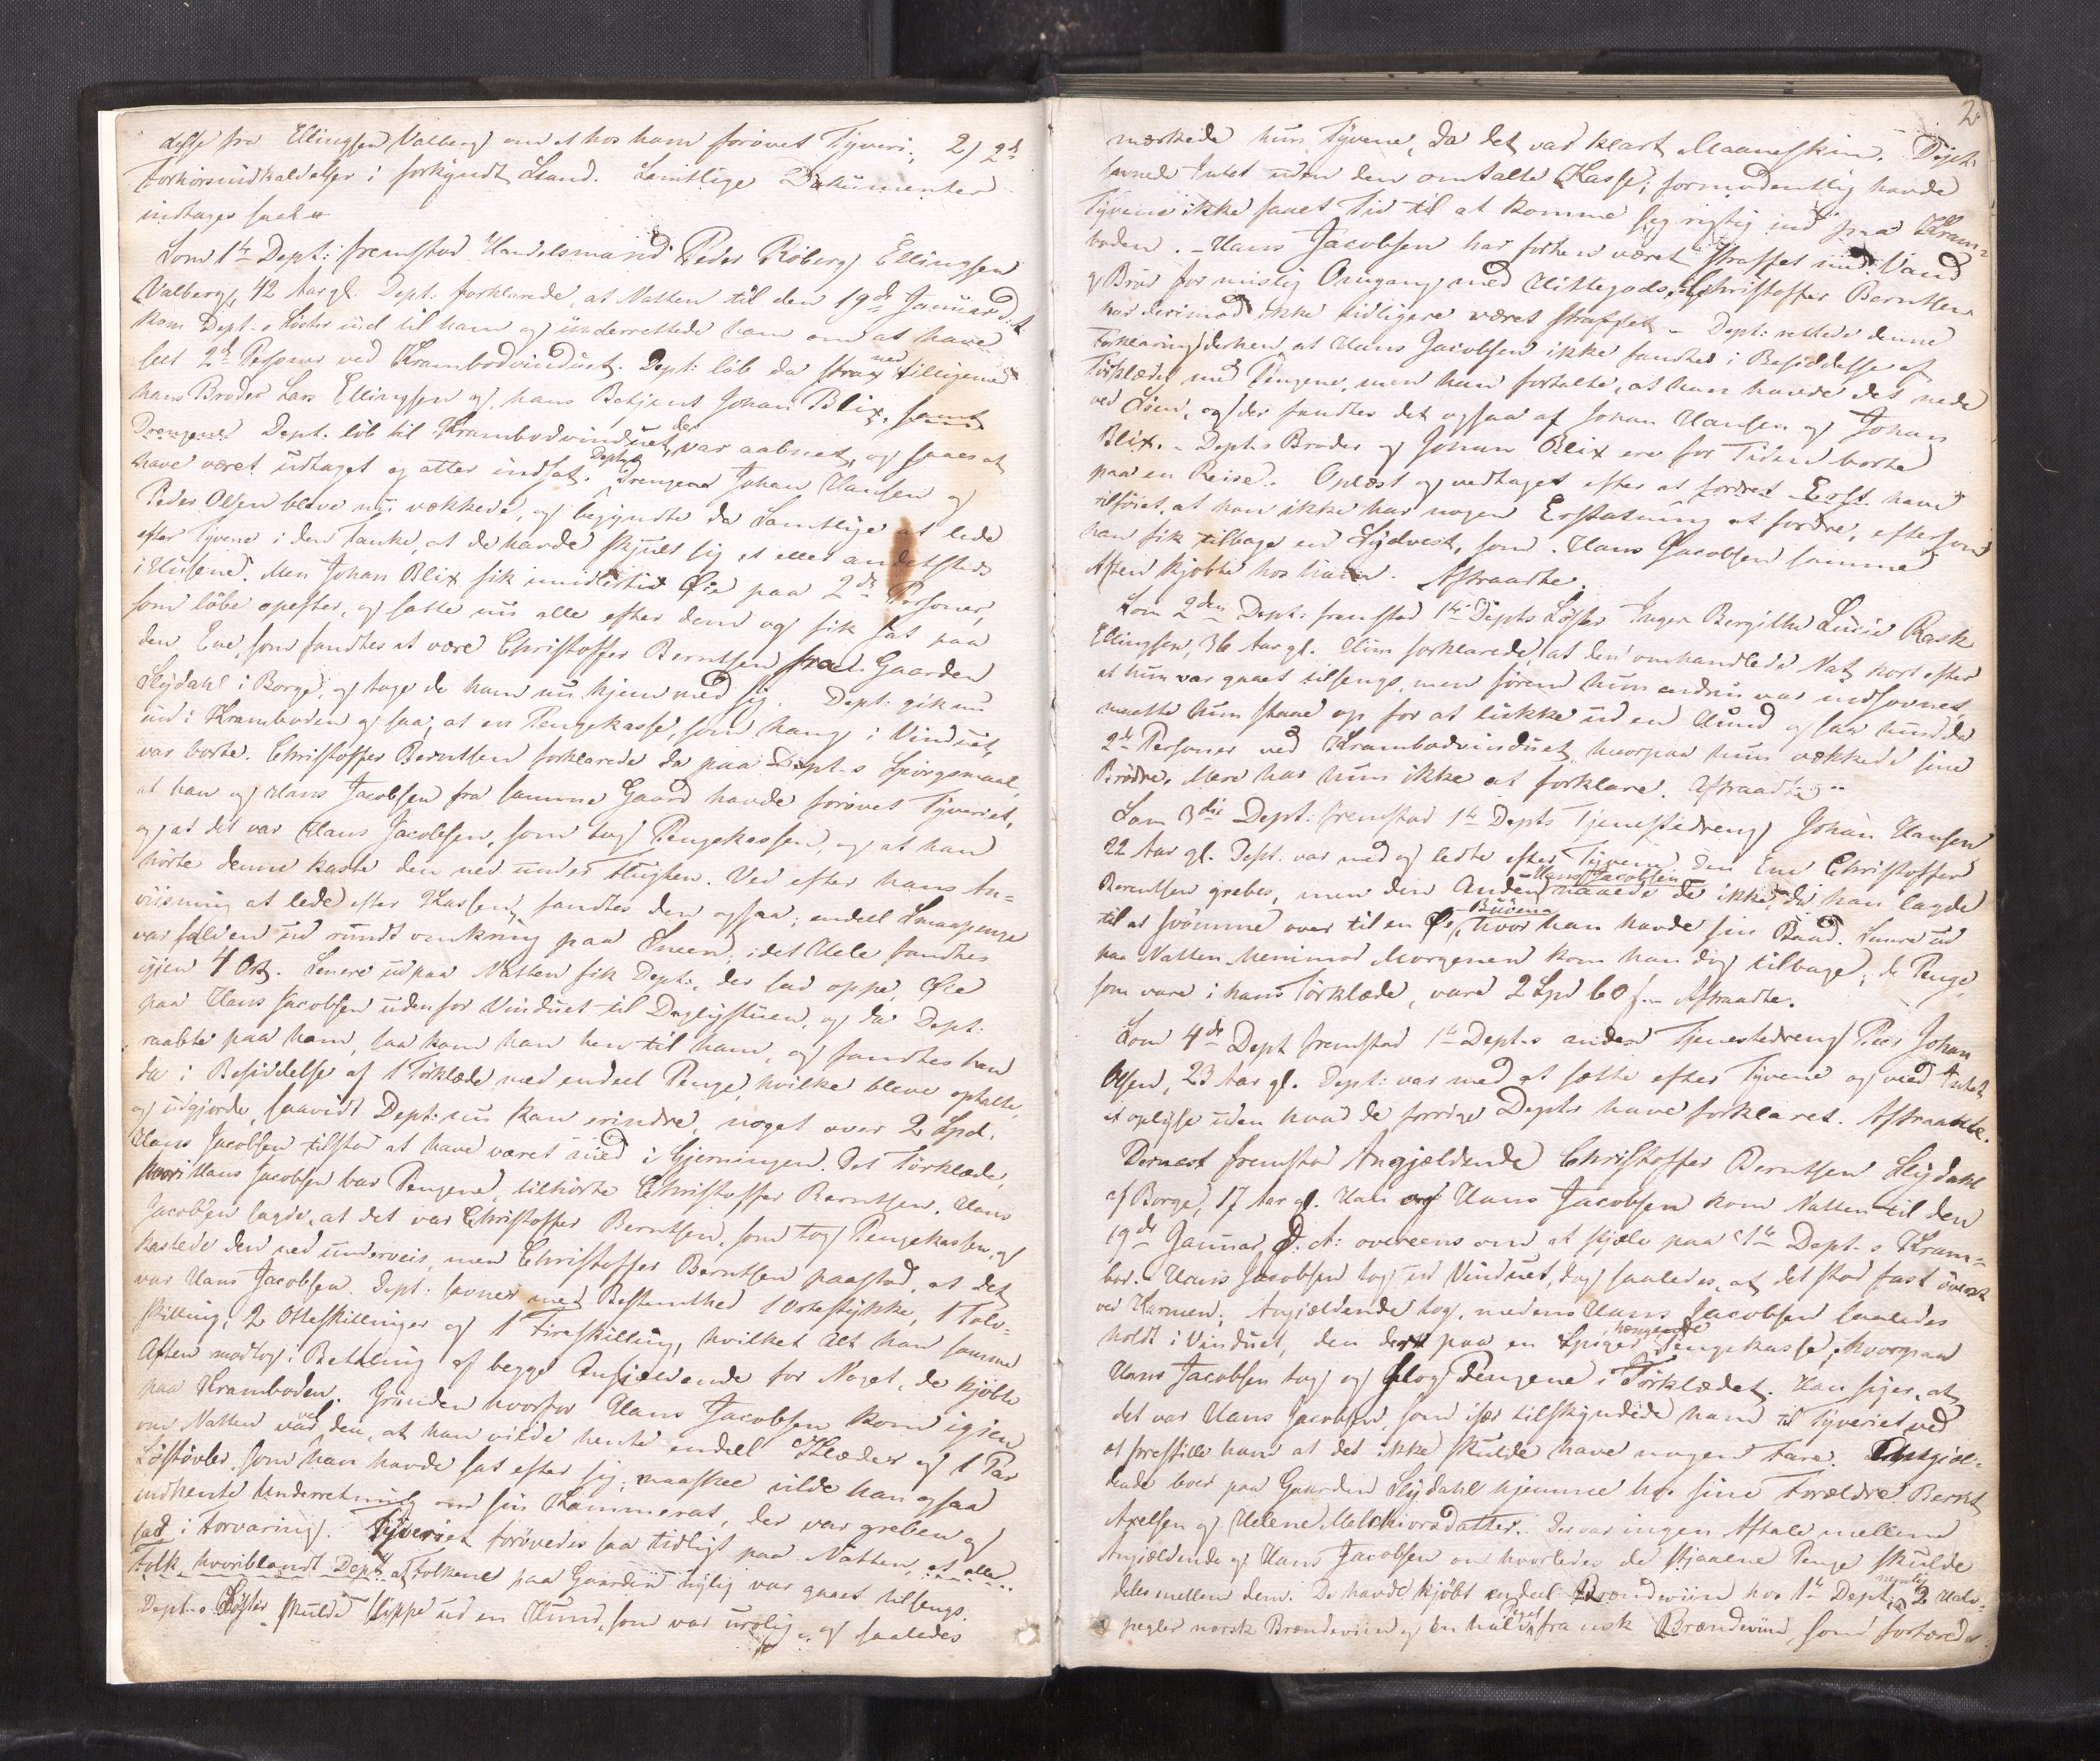 delse fra Ellingsen Valberg om et hos ham forøvet Tyveri; 2) 2de
Forhørsindkaldelser i forkyndt Stand. Samtlige Dokumenter
indtages saal.
Som 1ste Dept: fremstod Handelsmand Peder Røberg Ellingsen
Valberg, 42 Aar gl. Dept: forklarede, at Natten til den 19de Januar d: A.
kom Dept.s Søster ind til ham og underrettede ham om at have
seet 2de Personer ved Krambodvinduet. Dept: løb da strax ned tilligemed
hans Broder Lars Ellingsen og hans Betjent Johan Blix, samt
Drengene. Dept. løb til Krambodvinduet, der var aabnet, og saaes at
have været udtaget og atter indsat. Dept.s Drengene Johan Hansen og
Peder Olsen bleve nu vækkede, og begyndte da Samtlige at lede
efter Tyvene i den Tanke, at de havde skjult sig et eller andetsteds
i Husene. Men Johan Blix fik imidlertid Øie paa 2de Personer,
som løbe opefter, og satte nu alle efter dem og fik fat paa
den Ene, som fandtes at være Christoffer Berntsen fra Gaarden
Slydahl i Borge, og toge de ham nu hjem med sig. Dept: gik nu
ind i Kramboden og saa, at en Pengekasse, som hang i Vinduet,
var borte. Christoffer Berntsen forklarede da paa Dept-s Spørgsmaal,
at han og Hans Jacobsen fra samme Gaard havde forøvet Tyveriet,
og at det var Hans Jacobsen, som tog Pengekassen, og at han
hørte denne kaste den ned under Flugten. Ved efter hans An-
viisning at lede efter Kassen, fandtes den ogsaa; endeel Smaapenge
var falden ud rundt omkring paa Sneen; i det Hele fandtes
igjen 4 Ort. Senere ud paa Natten fik Dept:, der sad oppe, Øie
paa Hans Jacobsen udenfor Vinduet til Dagligstuen, og da Dept:
raabte paa ham, saa kom han hen til ham, og fandtes han
da i Besiddelse af 1 Tørklæde med endeel Penge, hvilke bleve optalte,
og udgjorde, saavidt Dept: nu kan erindre, noget over 2 Spd.
Hans Jacobsen tilstod at have været med i Gjerningen. Det Tørklæde,
hvori Hans Jacobsen bar Pengene, tilhørte Christoffer Berntsen. Hans
Jacobsen sagde, at det var Christoffer Berntsen, som tog Pengekassen, og
kastede den ned underveis, men Christoffer Berntsen paastod, at det
var Hans Jacobsen. Dept: savner med Bestemthed 1 Ortestykke, 1 Tolv-
skilling, 2 Otteskillinger og 1 Fireskilling, hvilket Alt han samme
Aften modtog i Betaling af begge Angjældende for Noget, de kjøbte
paa Kramboden. Grunden hvorfor Hans Jacobsen kom igjen
om Natten var vel den, at han vilde hente endeel Klæder og 1 Par
Søstøvler, som han havde sat efter sig; maaskee vilde han ogsaa
indhente Underretning om sin Kammerat, der var greben og
sad i Forvaring. Tyveriet forøvedes saa tidligt paa Natten, at alle
Folk, hvoriblandt Dept., at Folkene paa Gaarden nylig var gaaet tilsengs.
Dept.s Søster skulde slippe ud en Hund, som var urolig, og saaledes
2
mærkede hun Tyvene, da det var klart Maaneskin. Dept:
savnede Intet uden den omtalte Kasse; formodentlig havde
Tyvene ikke faaet Tid til at komme sig rigtig ind paa Kram-
boden. - Hans Jacobsen har forhen været straffet med Vand
og Brød for mislig Omgang med Hittegods, Christoffer Berntsen
har derimod ikke tidligere været straffet. - Dept: rettede denne
Forklaring derhen at Hans Jacobsen ikke fandtes i Besiddelse af
Tørklædet med Pengene, men han fortalte, at han havde det nede
ved Søen, og der fandtes det ogsaa af Johan Hansen og Johan
Blix. - Dept.s Broder og Johan Blix ere for Tiden borte
paa en Reise. Oplæst og vedtaget efter at fordret Erst. have
tilføiet, at han ikke har nogen Erstatning at fordre, eftersom
han fik tilbage en Sydvest, som Hans Jacobsen samme
Aften kjøbte hos ham. Aftraadte.
Som 2den Dept: fremstod 1ste Depts Søster Inger Bergitha Lucie Rask
Ellingsen, 36 Aar gl. Hun forklarede, at den omhandlede Nat kort efter
at hun var gaaet tilsengs, men førend hun endnu var indsovnet,
maatte hun staae op for at lukke ud en Hund og saa hun da
2de Personer ved Krambodvinduet, hvorpaa hun vækkede sine
Brødre. Mere har hun ikke at forklare. Aftraadte.
Som 3die Dept: fremstod 1ste Depts Tjenestedreng Johan Hansen
22 Aar gl. Dept. var med og ledte efter Tyvene. Den Ene Christoffer
Berentsen grebes, men den Anden Hans Jacobsen naaede de ikke, da han lagde
til at svømme over til en Øe, Buøena, hvor han havde sin Baad. Senere ud
paa Natten henimod Morgenen kom han dog tilbage; de Penge,
som vare i hans Tørklæde, vare 2 Spd 60 s. Aftraadte.
Som 4de Dept fremstod 1ste Dept.s anden Tjenestedreng Peder Johan
Olsen, 23 Aar gl. Dept: var med at sætte efter Tyvene og veed Intet
at oplyse uden hvad de forrige Depts have forklaret. Aftraadte.
Dernæst fremstod Angjældende Christoffer Berntsen Slydahl
af Borge, 17 Aar gl. Han og Hans Jacobsen kom Natten til den
19de Januar d. A: overeens om at stjæle paa 1ste Dept.s Kram-
bod. Hans Jacobsen tog ud Vinduet, dog saaledes, at det stod fast øverst
ved Karmen; Angjældende tog, medens Hans Jacobsen saaledes
holdt i Vinduet, den der paa en Spiger hængende Pengekasse, hvorpaa
Hans Jacobsen tog og slog Pengene i Tørklædet. Han siger, at
det var Hans Jacobsen, som især tilskyndede ham til Tyveriet ved
at forestille ham at det ikke skulde have nogen Fare. Angjæl-
dende boer paa Gaarden Slydahl hjemme hos sine Forældre Bernt
Axelsen og Helene Melchiorsdatter. Der var ingen Aftale mellem
Angjældende og Hans Jacobsen om hvorledes de stjaalne Penge skulde
deles mellem dem. De havde kjøbt endeel Brændeviin hos 1ste Dept. nemlig 2 Halv-
pegler norsk Brændeviin og en halv Pegel fransk Brændeviin, som fortæredes